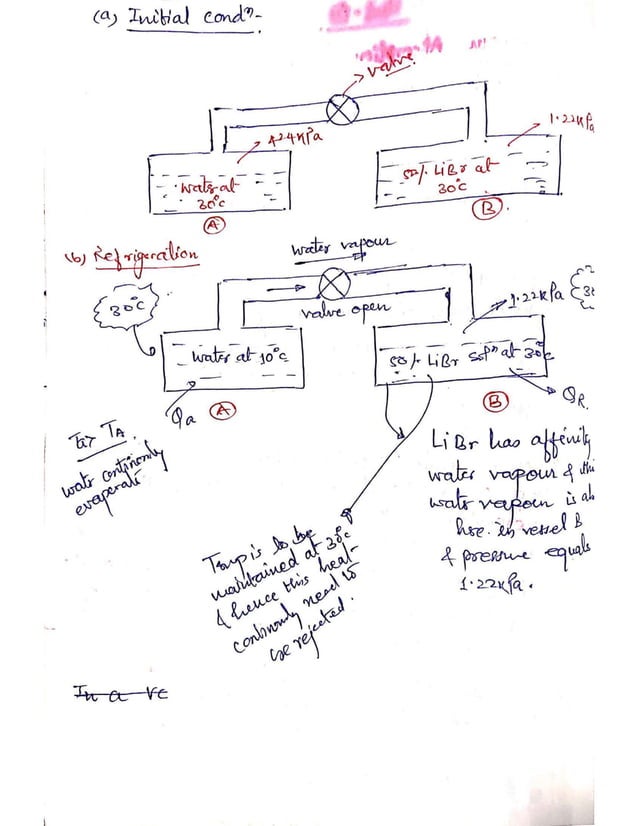 (a) Initial condⁿ-
valve
4.24kPa
1.22kPa
water at
30°c
50/. LiBr at
30°c
A
B
(b) Refrigeration
water vapour
30°C
valve open
1.22kPa
water at 10°c
50/. LiBr solⁿ at 30°c
Qa
A
B
QR
TA
water continously
evaporate
LiBr has affinity
water vapour &
water vapour is ab
hre. in vessel B
& pressure equals
1.22kPa.
Temp is to be
maintained at 30°c
& hence this heat
continously need to
be rejected.
In a